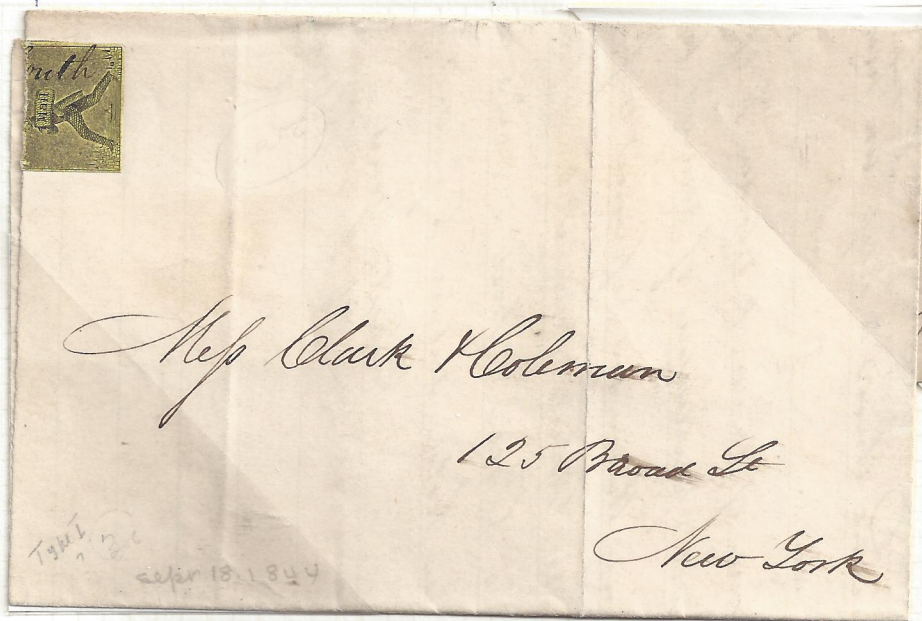 Mess Clark & Coleman
125 Broad St
New York
Type I
Sept 18, 1844